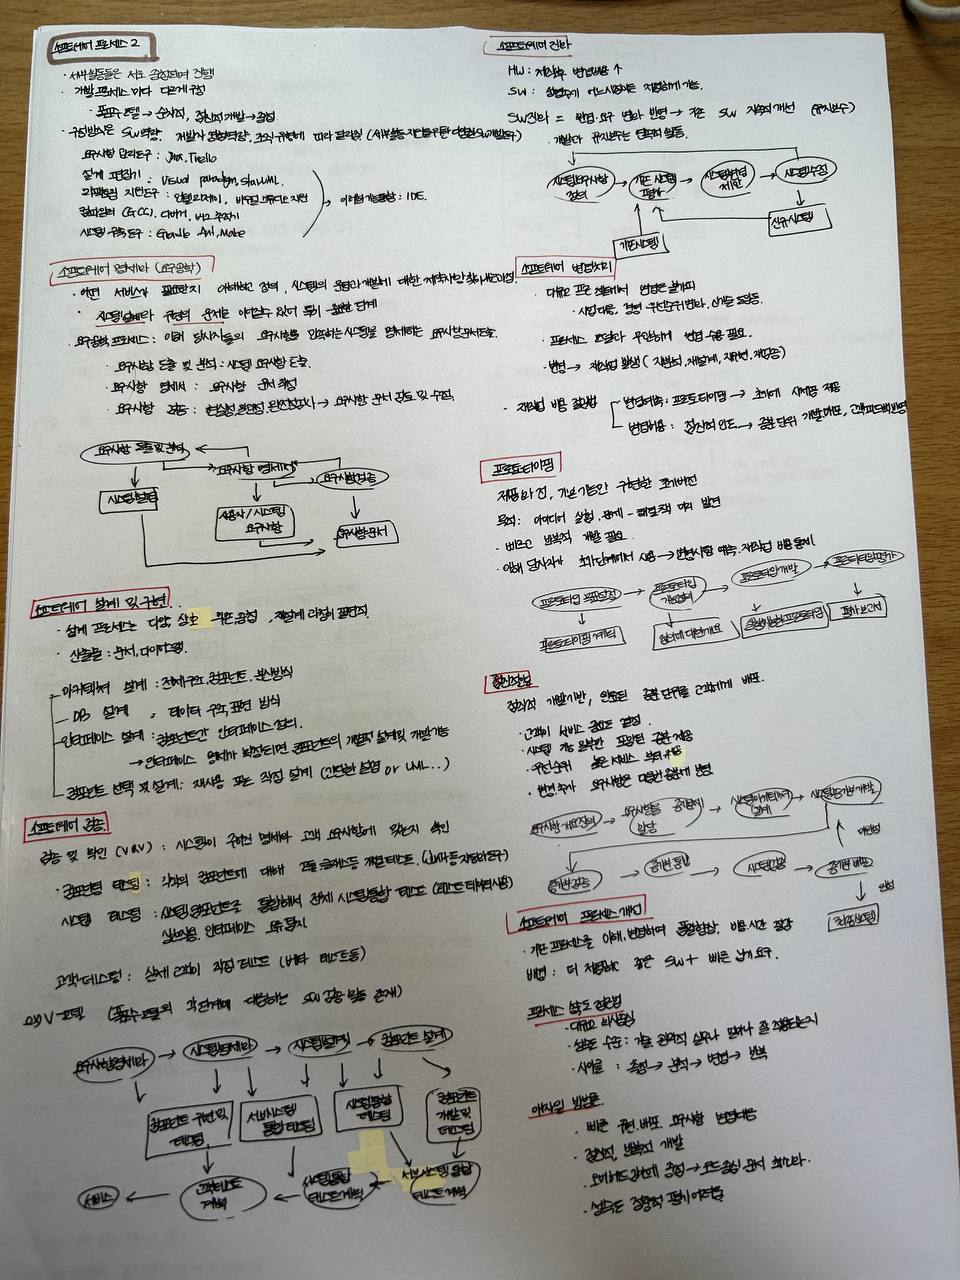 소프트웨어 프로세스 2
· 세부 활동들은 서로 중첩되며 진행
· 개발 프로세스 마다 다르게 구성
· 폭포수 모델 → 순차적, 점진적 개발 → 중첩
· 구성방식은 SW 역량, 개발자 경험 역량, 조직 유형에 따라 달라짐
요구사항 관리도구 : Jira, Trello
설계 편집기 : Visual paradigm, starUML
컴파일러 (GCC), 디버거, 버그 추적기
시스템 구축 도구 : Gradle, Ant, Make
통합 : IDE.
소프트웨어 명세화 (요구공학)
· 어떤 서비스가 필요한지 이해하고 정의, 시스템의 운영과 개발에 대한 제약사항 찾아내는 과정
· 시스템설계와 구현의 문제로 이어질수 있어 특히 중요한 단계
· 요구공학 프로세스 : 이해 당사자들의 요구사항을 만족하는 시스템을 명세하는 요구사항 문서 도출
· 요구사항 도출 및 분석 : 시스템 요구사항 도출
· 요구사항 명세서 : 요구사항 문서 작성
· 요구사항 검증 : 현실성, 일관성, 완전성 검사 → 요구사항 문서 검토 및 수정
요구사항 도출 및 분석
요구사항 명세서
요구사항 검증
시스템 설명
사용자 / 시스템 요구사항
요구사항 문서
소프트웨어 설계 및 구현
· 설계 프로세스는 다양, 상호 의존 공정
· 산출물 : 문서, 다이어그램
아키텍처 설계 : 전체구조, 컴포넌트, 분산방식
DB 설계 : 데이터 구조, 표현 방식
인터페이스 설계 : 컴포넌트간 인터페이스 정의.
→ 인터페이스 명세가 확정되면 컴포넌트의 개별적 설계 및 개발 가능
컴포넌트 선택 및 설계 : 재사용 또는 직접 설계 (간단한 설명 or UML...)
소프트웨어 검증
검증 및 확인 (V&V) : 시스템이 주어진 명세와 고객 요구사항에 맞는지 확인
· 컴포넌트 테스팅 : 각각의 컴포넌트에 대해 모듈 클래스등 개별 테스트.
시스템 테스팅 : 시스템 컴포넌트를 통합해서 전체 시스템 통합 테스트
상호작용, 인터페이스 오류 탐지
고객 테스팅 : 실제 고객이 직접 테스트 (베타 테스트 등)
ex) V-모델 (폭포수 모델의 각 단계에 대응하는 SW 검증 활동 존재)
요구사항 명세화
시스템 명세화
시스템 설계
컴포넌트 설계
컴포넌트 구현 및 테스팅
서브시스템 통합 테스팅
시스템 통합 테스팅
컴포넌트 개발 및 테스팅
서비스
고객테스트 계획
시스템통합 테스트 계획
서브시스템 통합 테스트 계획
소프트웨어 진화
HW : 제작후 변경비용 ↑
SW : 어느시점이든 변경하기 가능.
SW진화 = 변경 요구 변화 반영 → 기존 SW 지속적 개선 (유지보수)
· 개발과 유지보수는 연속적 활동.
시스템 요구사항 정의
기존 시스템 평가
시스템 변경 제안
시스템 수정
기존 시스템
신규 시스템
소프트웨어 변경처리
· 대규모 프로젝트에서 변경은 불가피
· 시장 대응, 경쟁, 우선순위 변화, 신기술 도입 등.
· 프로세스 모델과 무관하게 변경 수용 필요.
· 변경 → 재작업 발생 (재분석, 재설계, 재구현, 재검증)
· 재작업 비용 절감법
변경예측 : 프로토타이핑 → 초기에 시제품 적용
변경허용 : 점진적 인도 → 증분 단위 개발, 배포, 고객피드백 반영
프로토타이핑
제품의 전, 기본 기능만 구현한 초기버전
목적 : 아이디어 실험, 문제 - 해결책 미리 발견
· 빠르고 반복적 개발 필요.
· 이해 당사자가 초기단계에서 사용 → 변경사항 예측, 재작업 비용 통제
프로토타입 목표설정
프로토타입 기능정의
프로토타입 개발
프로토타입 평가
프로토타이핑 계획
실행가능한 프로토타입
평가 보고서
점진적 전달
점진적 개발기반, 완료된 증분 단위를 고객에게 배포.
· 고객이 서비스 중요도 결정.
· 우선순위 높은 서비스 부터
· 변경, 추가 요구사항은 다음번 증분에 반영
요구사항 개요정의
요구사항을 증분에 할당
시스템 아키텍처 설계
시스템 증분 개발
증분 검증
증분 통합
시스템 검증
증분 배포
미완성
완성
최종시스템
소프트웨어 프로세스 개선
· 기존 프로세스를 이해, 변경하여 품질향상, 비용, 시간 절감
배경 : 더 저렴하고 좋은 SW + 빠른 납기 요구.
프로세스 성숙도 접근법
· 성숙도 수준 : 기술 관리적 실무가 얼마나 잘 적용되는지
· 사이클 : 측정 → 분석 → 변경 → 반복
애자일 방법론
· 빠른 구현, 배포, 요구사항 변경대응
· 점진적, 반복적 개발
· 오버헤드 감소에 중점 → 코드 중심, 문서 최소화.